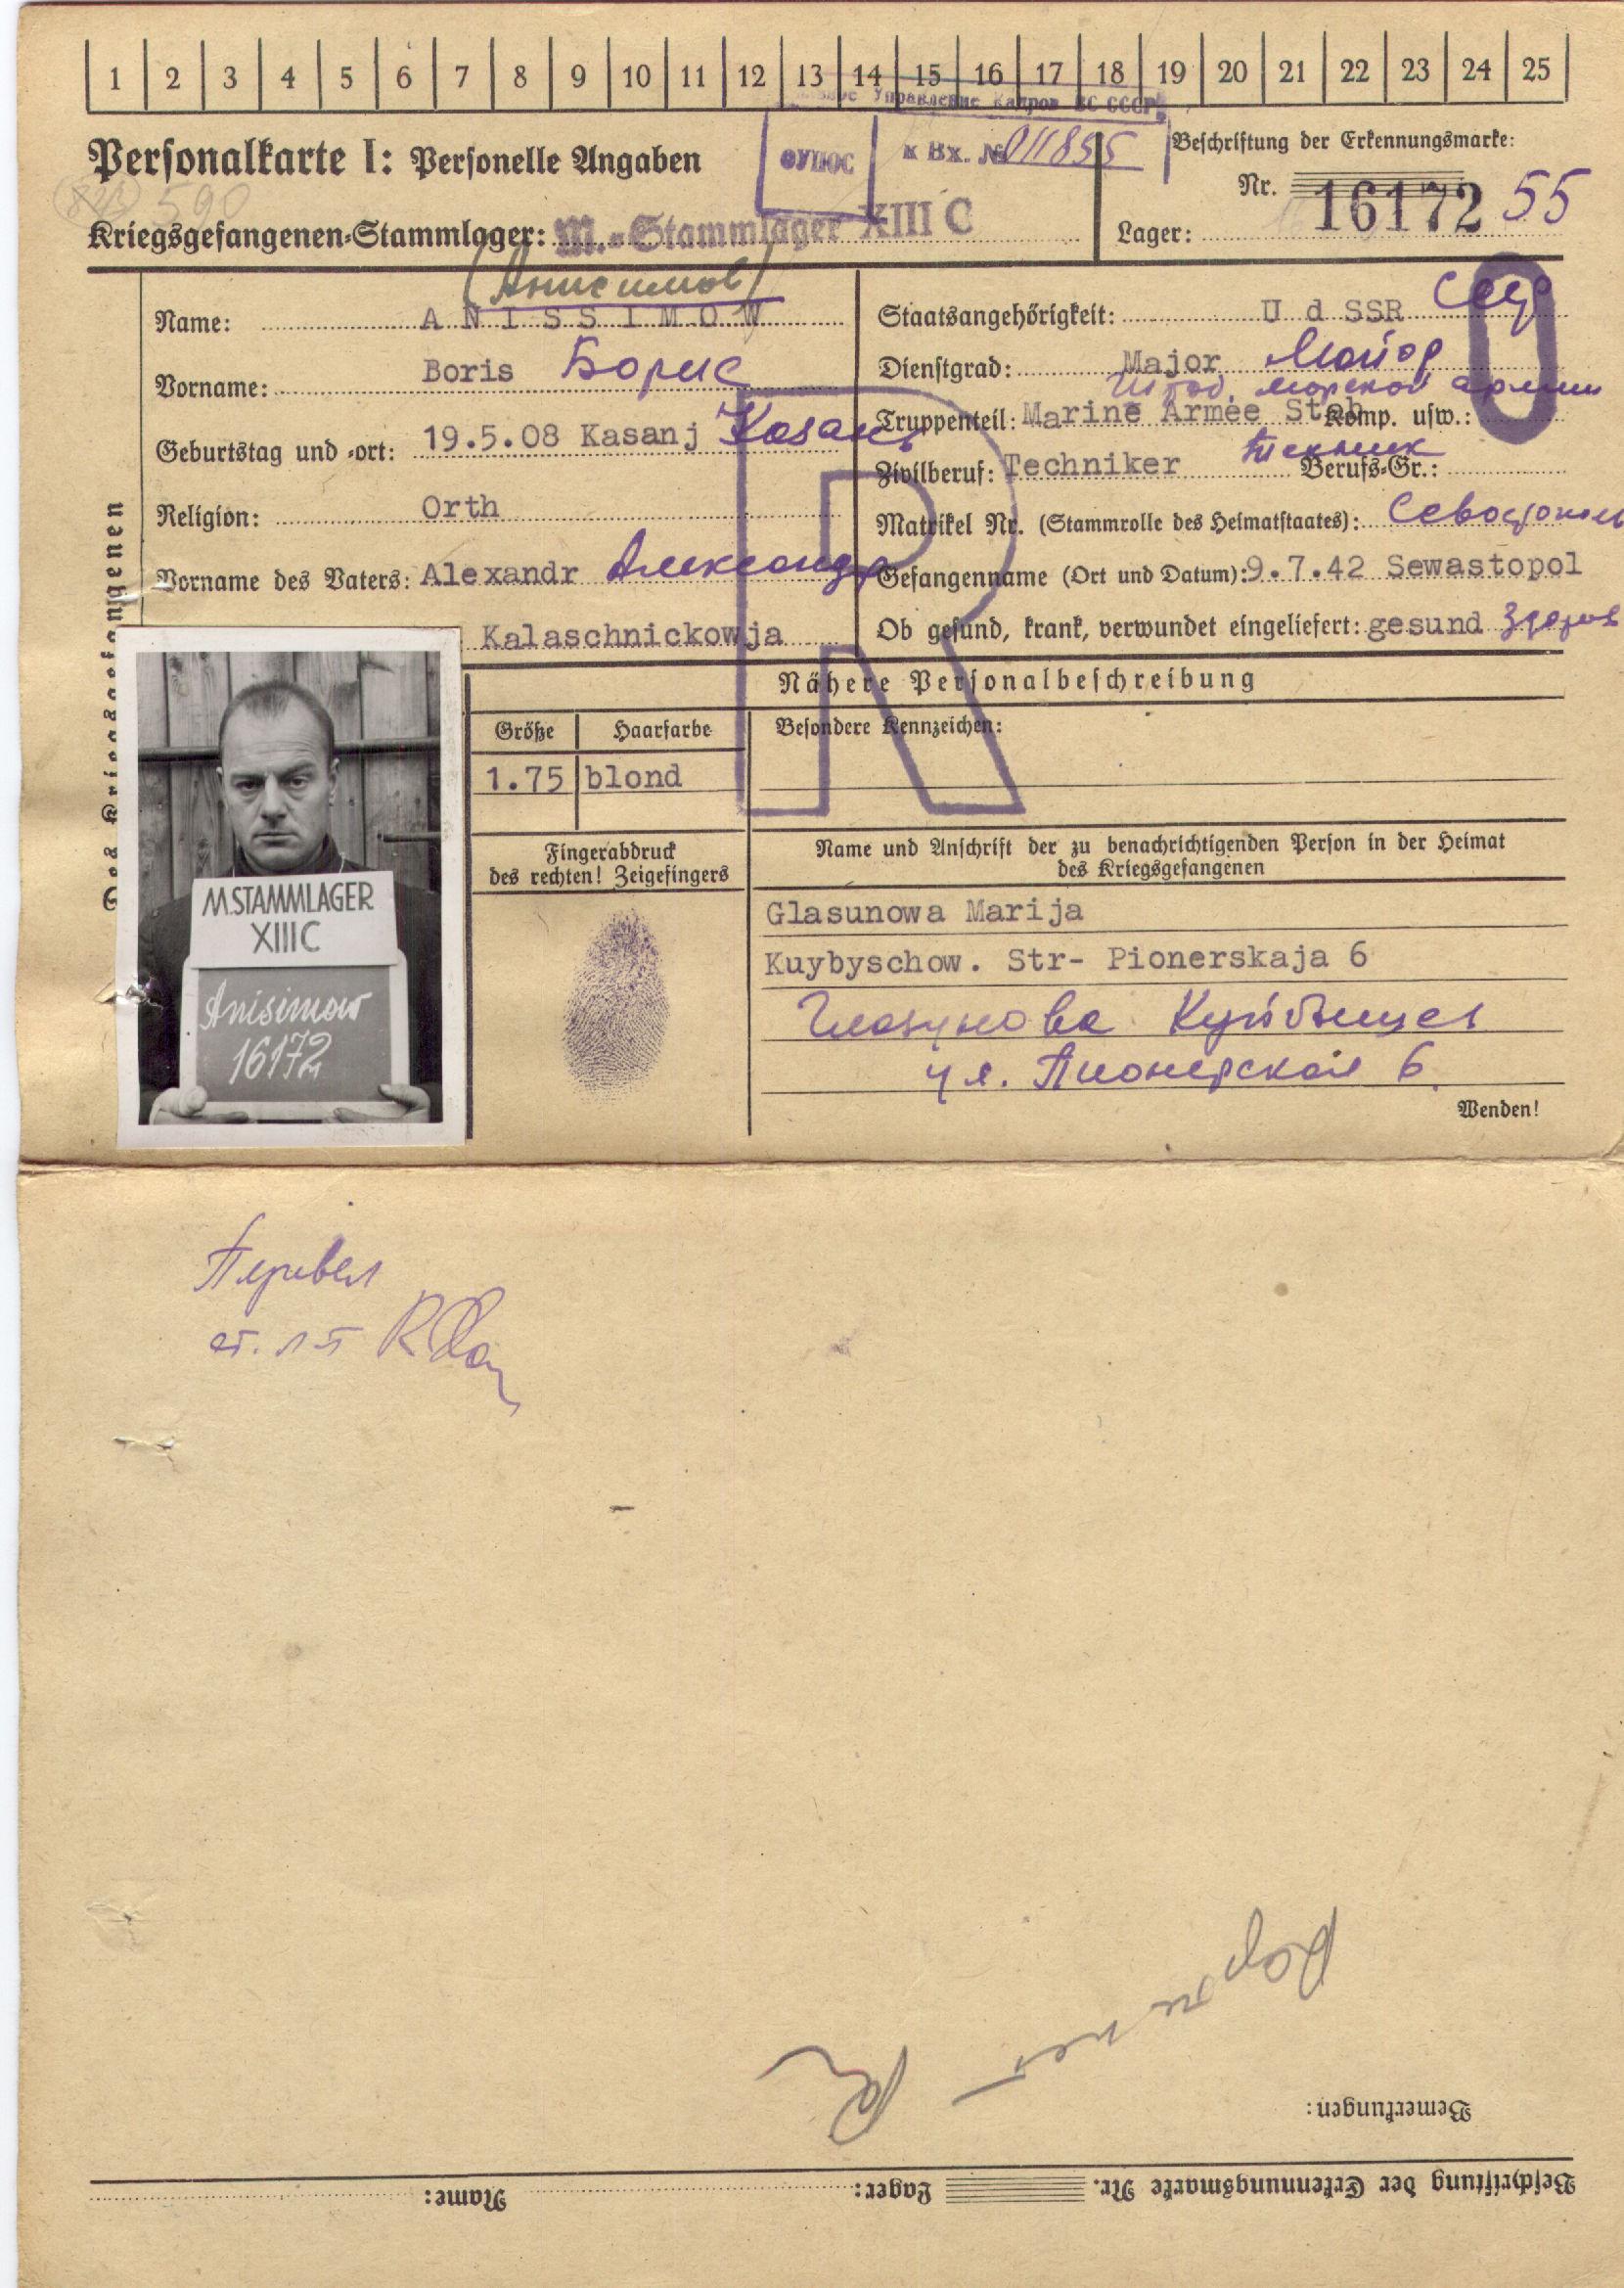 1 2 3 4 5 6 7 8 9 10 11 12 13 14 15 16 17 18 19 20 21 22 23 24 25
Управление Кадров ВС СССР
Personalkarte I: Personelle Angaben
ФУПОС к Вх. № 011855
Beschriftung der Erkennungsmarke:
Nr. 16172 55
590
Kriegsgefangenen-Stammlager: M.-Stammlager XIII C
Lager:
(Анисимов)
Name: ANISSIMOW
Vorname: Boris Борис
Geburtstag und -ort: 19.5.08 Kasanj Казань
Religion: Orth
Vorname des Vaters: Alexandr Александр
Kalaschnickowja
Staatsangehörigkeit: U d SSR
Dienstgrad: Major Майор
Штаб. морской армии
Truppenteil: Marine Armee Stab Komp. usw.:
Zivilberuf: Techniker техник Berufs-Gr.:
Matrikel Nr. (Stammrolle des Heimatstaates): Севастополь
Gefangennahme (Ort und Datum): 9.7.42 Sewastopol
Ob gesund, krank, verwundet eingeliefert: gesund здоров
R
Des Kriegsgefangenen
Nähere Personalbeschreibung
Größe Haarfarbe Besondere Kennzeichen:
1.75 blond
Fingerabdruck
des rechten! Zeigefingers
Name und Anschrift der zu benachrichtigenden Person in der Heimat
des Kriegsgefangenen
Glasunowa Marija
Kuybyschow. Str- Pionerskaja 6
Глазунова Куйбышев
ул. Пионерская 6
Wenden!
M.STAMMLAGER
XIIIC
Anisimow
16172
Перевел
ст. л-т
Bemerkungen:
Beschriftung der Erkennungsmarke Nr. Lager: Name: